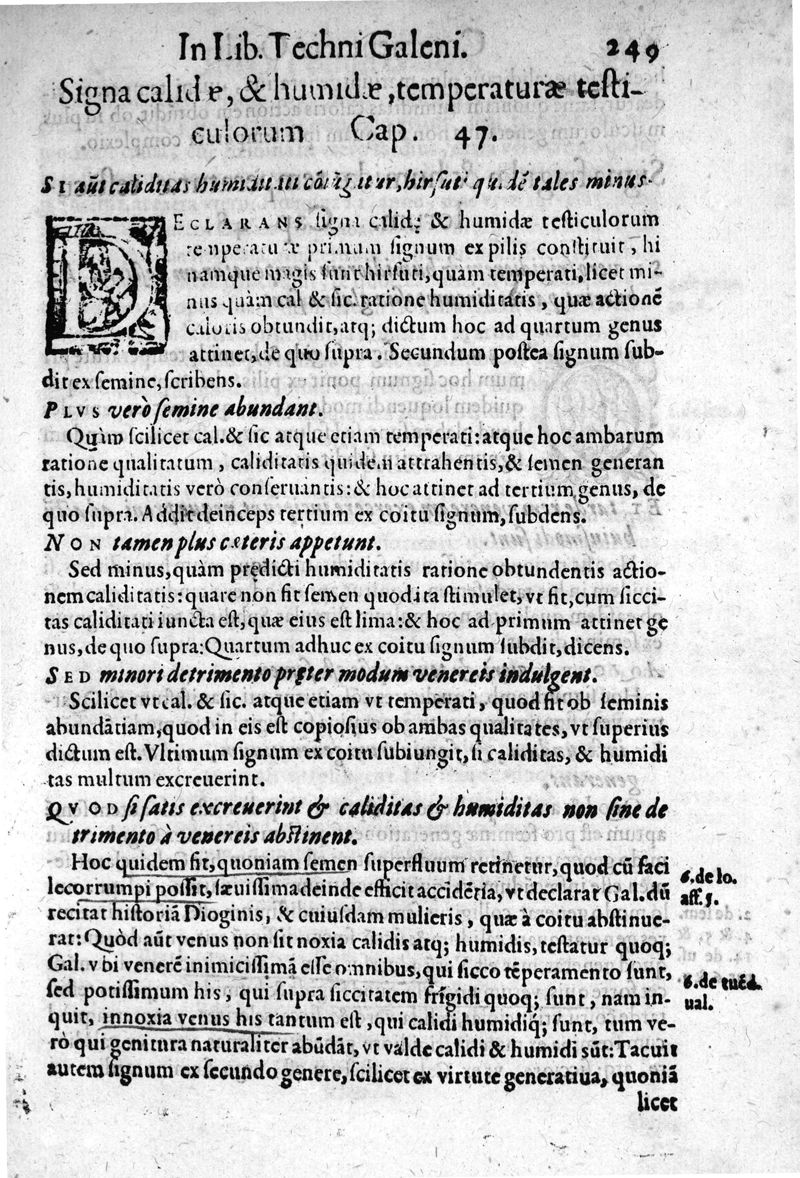 In Lib. Techni Galeni. 249
Signa calidæ, & humidæ, temperaturæ testi-
culorum Cap. 47.
SI aūt caliditas humiditati cōiūgitur, hirsuti quidē tales minus.
DECLARANS signa calidę & humidæ testiculorum
temperaturæ primum signum ex pilis constituit, hi
namque magis sunt hirsuti, quàm temperati, licet mi-
nus quàm cal & sic. ratione humiditatis, quæ actionē
caloris obtundit, atq; dictum hoc ad quartum genus
attinet, de quo supra. Secundum postea signum sub-
dit ex semine, scribens.
PLVS verò semine abundant.
Quàm scilicet cal. & sic atque etiam temperati: atque hoc ambarum
ratione qualitatum, caliditatis quidem attrahentis, & semen generan
tis, humiditatis verò conseruantis: & hoc attinet ad tertium genus, de
quo supra. Addit deinceps tertium ex coitu signum, subdens.
NON tamen plus cæteris appetunt.
Sed minus, quàm prędicti humiditatis ratione obtundentis actio-
nem caliditatis: quare non fit semen quod ita stimulet, vt fit, cum sicci-
tas caliditati iuncta est, quæ eius est lima: & hoc ad primum attinet ge
nus, de quo supra: Quartum adhuc ex coitu signum subdit, dicens.
SED minori detrimento pręter modum venereis indulgent.
Scilicet vt cal. & sic. atque etiam vt temperati, quod fit ob seminis
abundātiam, quod in eis est copiosius ob ambas qualitates, vt superius
dictum est. Vltimum signum ex coitu subiungit, si caliditas, & humidi
tas multum excreuerint.
QVOD si satis excreuerint & caliditas & humiditas non sine de
trimento à venereis abstinent.
Hoc quidem fit, quoniam semen superfluum retinetur, quod cū faci
le corrumpi possit, sæuissima deinde efficit accidētia, vt declarat Gal. dū
recitat historiā Dioginis, & cuiusdam mulieris, quæ à coitu abstinue-
rat: Quòd aūt venus non sit noxia calidis atq; humidis, testatur quoq;
Gal. vbi venerē inimicissimā esse omnibus, qui sicco tēperamento sunt,
sed potissimum his, qui supra siccitatem frigidi quoq; sunt, nam in-
quit, innoxia venus his tantum est, qui calidi humidiq́; sunt, tum ve-
rò qui genitura naturaliter abūdāt, vt valde calidi & humidi sūt: Tacuit
autem signum ex secundo genere, scilicet ex virtute generatiua, quoniā
licet
6. de lo.
aff. 5.
6. de tuēd.
ual.